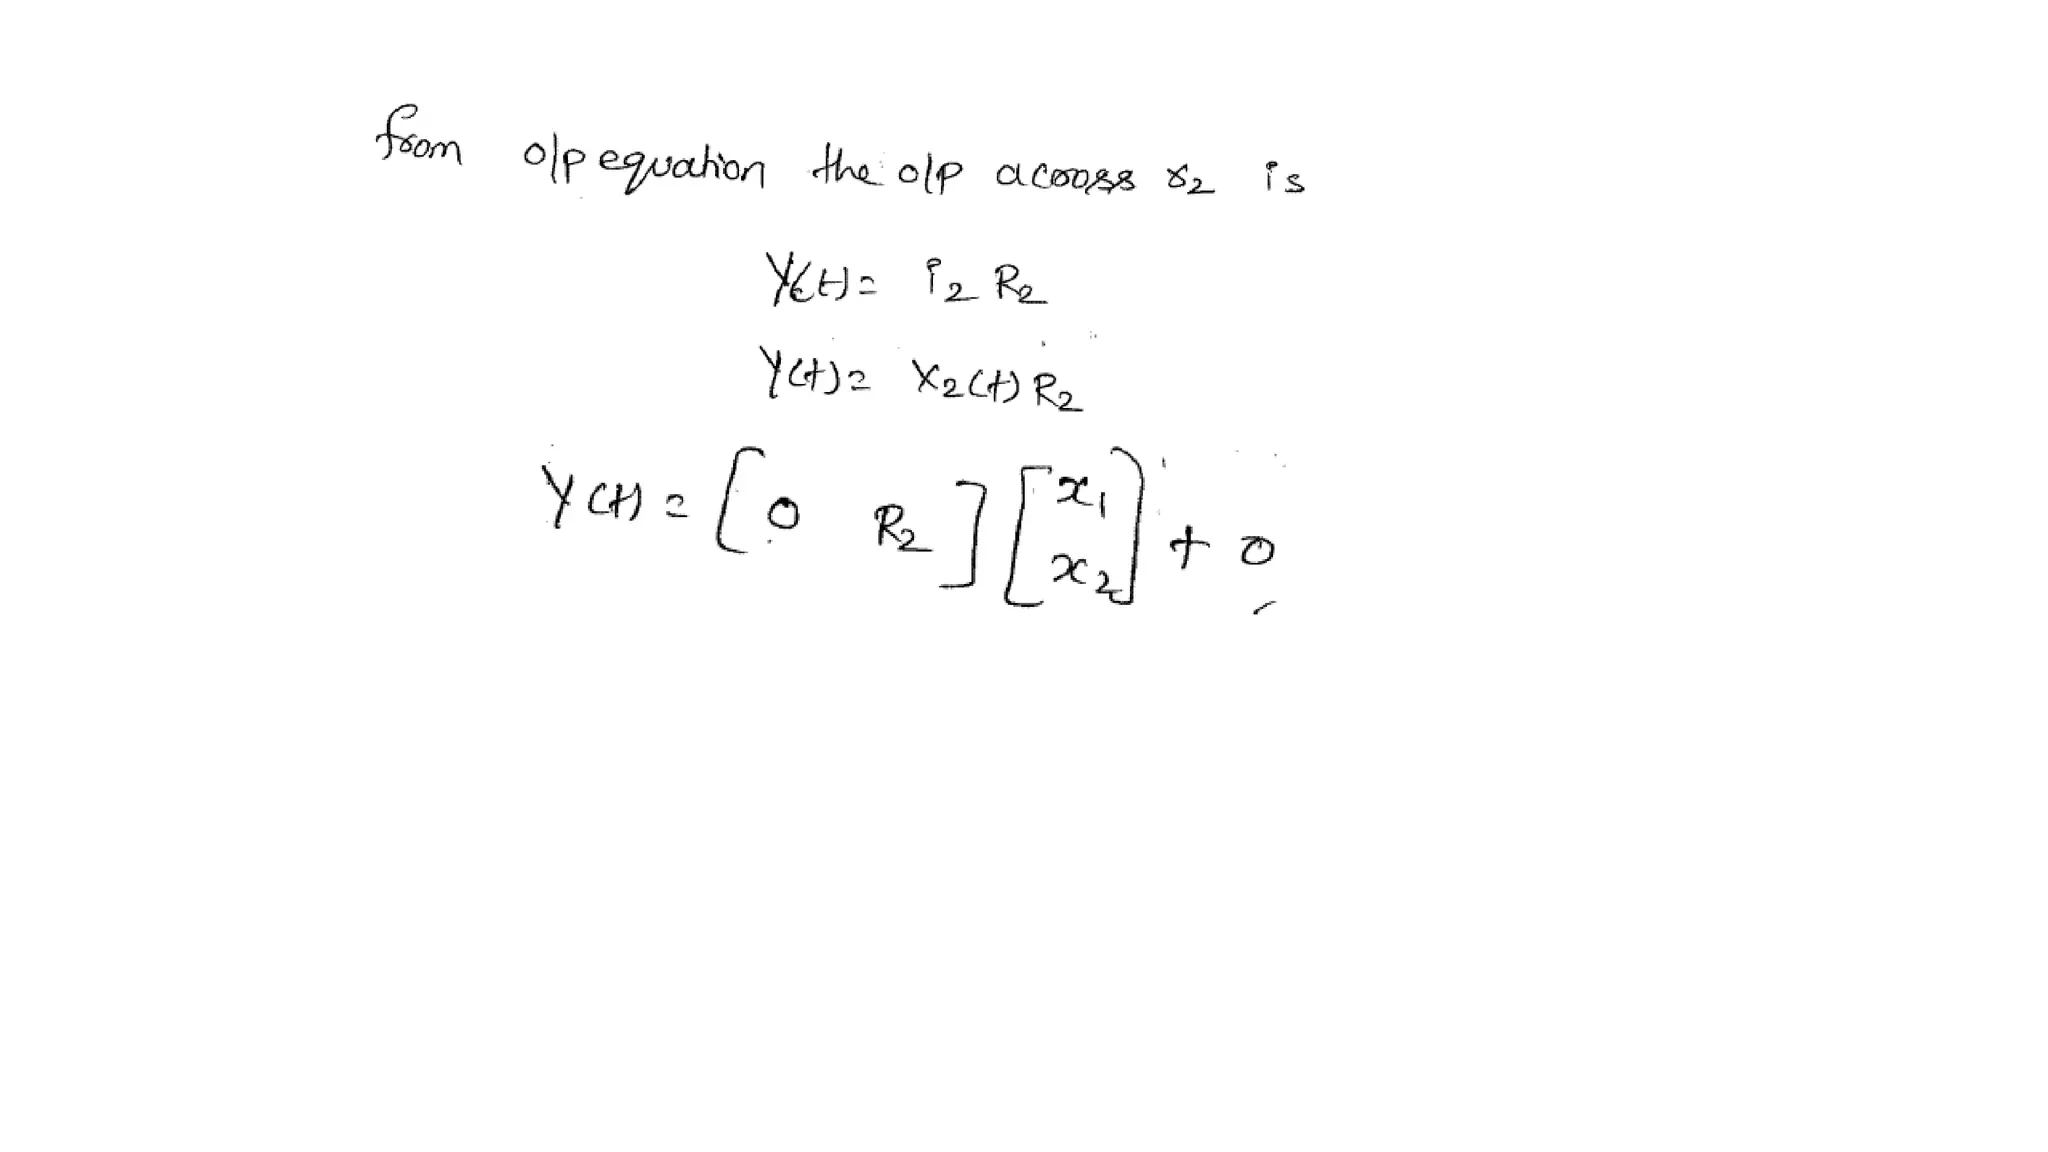 from o/p equation the o/p across r2 is
Y(t) = i2 R2
Y(t) = X2(t) R2
Y(t) = [0 R2] [x1 x2] + 0